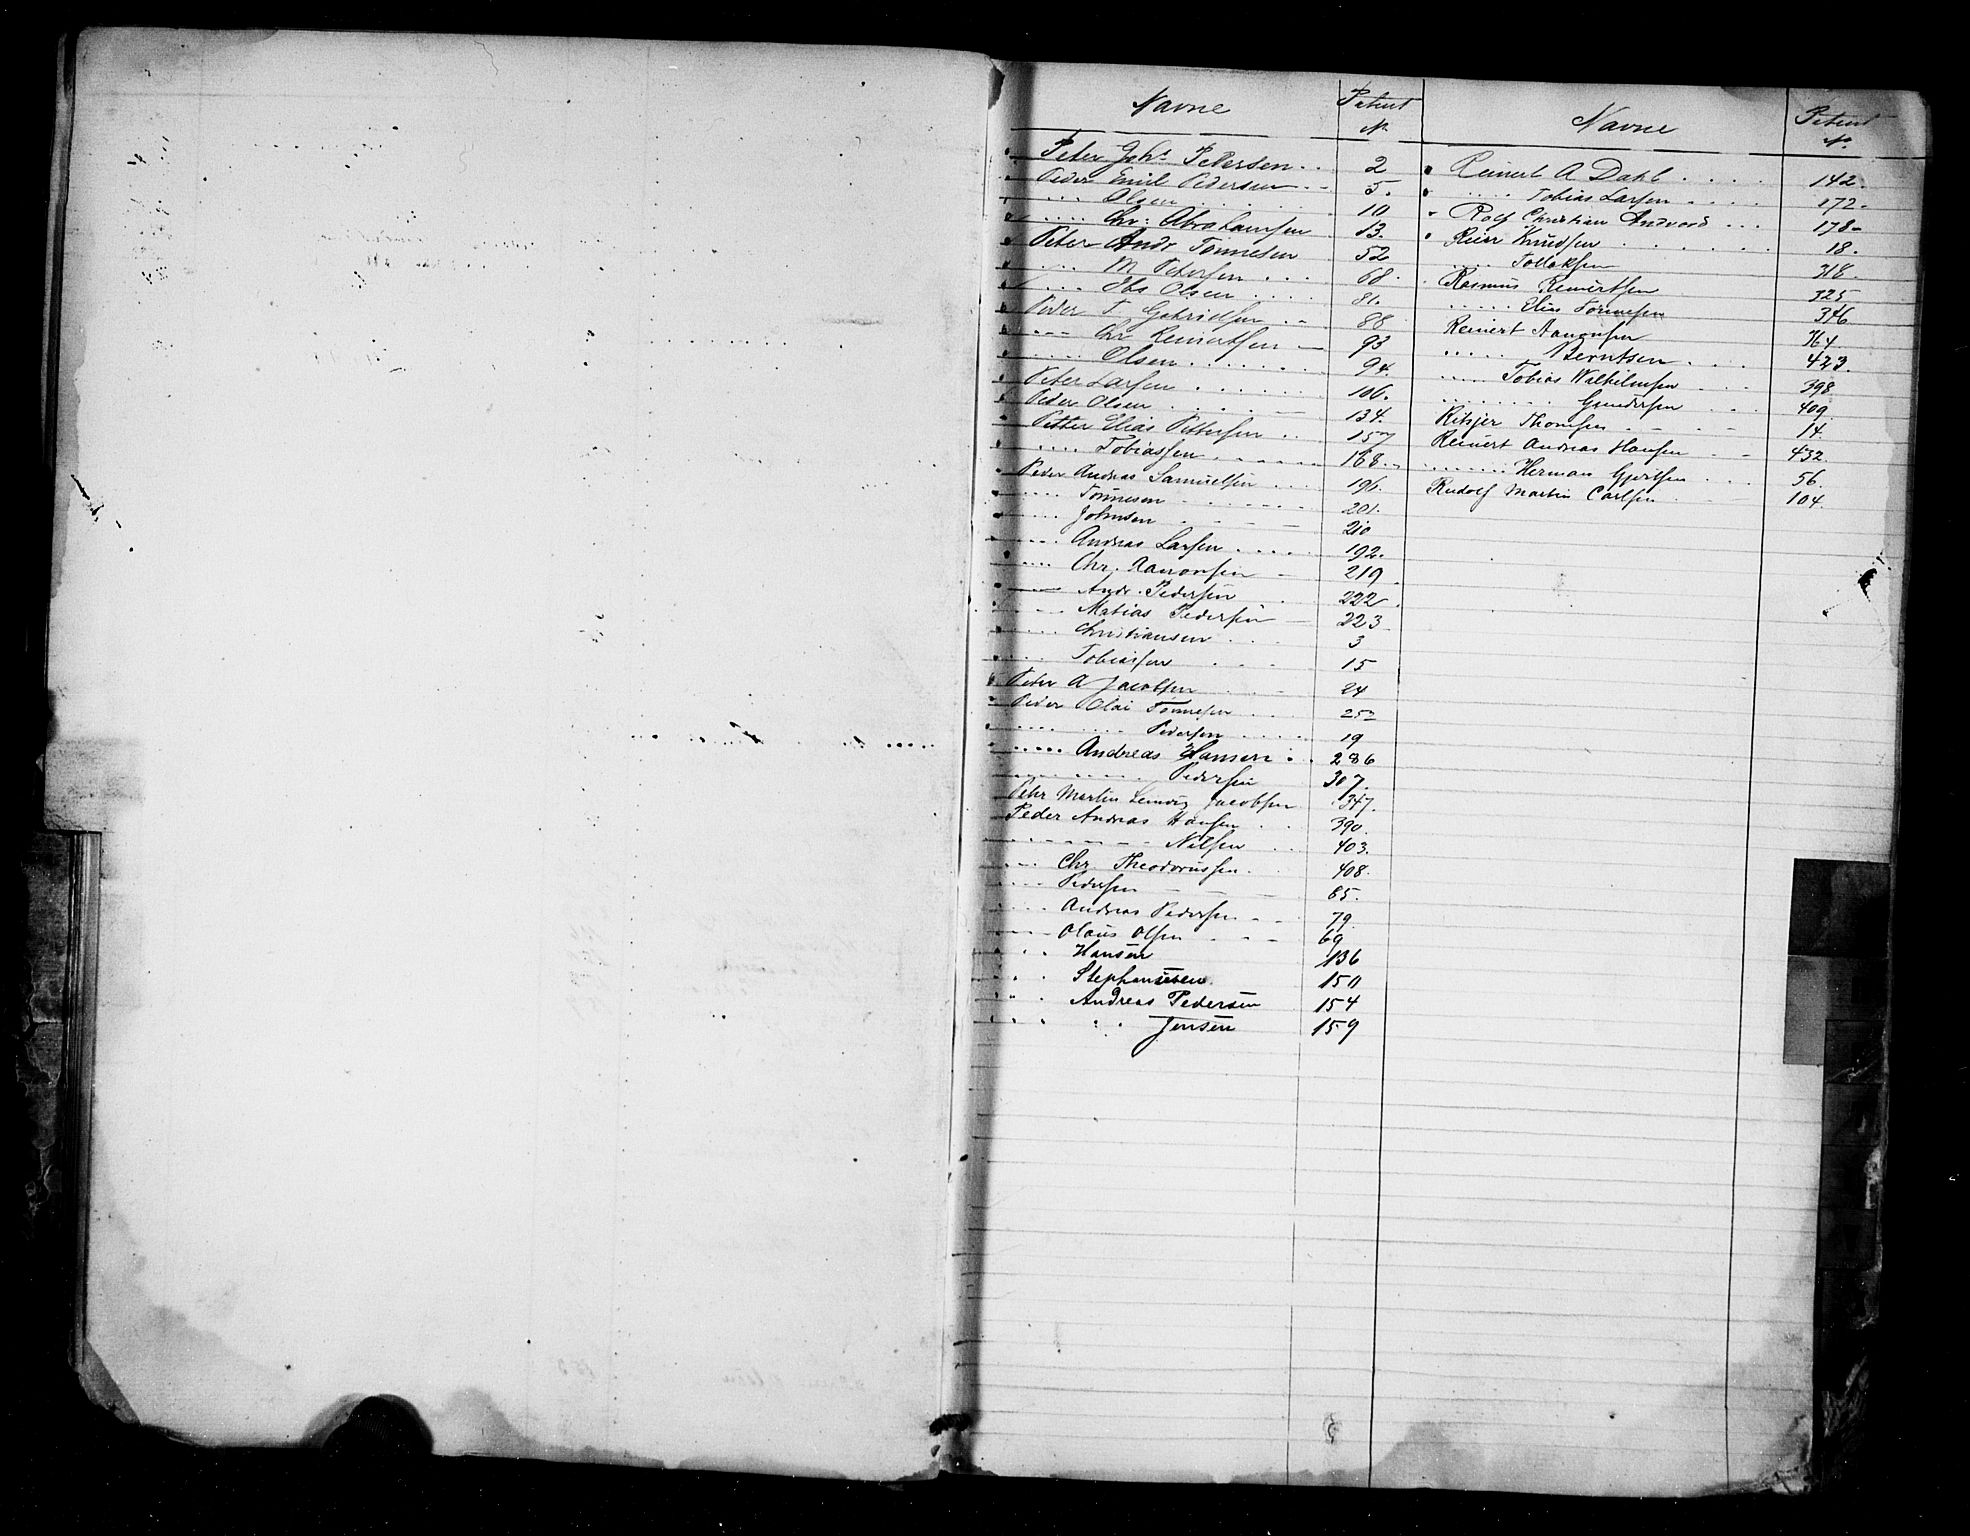 Navne
Patent
No
Peter Johs Petersen . . 2
Peder Emil Pedersen . . 5.
. . . . Olsen . . . . 10
. . . . Chr: Abrahamsen 13.
Peter Andr Tönnesen 52
. . . . M Petersen . . . . 68.
. . . . Olsen . . . . 81.
Peder T. Gabrielsen . . 88
. . . . Chr Reinertsen — 93
. . . . Olsen . . . . . . 94.
Peter Larsen . . . . . . 106.
Peder Olsen . . . . . . 134.
Petter Elias Pettersen . . 157
. . . . Tobiassen . . . . . 168.
Peder Andreas Samuelsen . . . . 196.
. . . . Tönnesen . . . . . 201.
. . . . Johnsen . . . . . 210
. . . . Andreas Larsen . . . . 192.
. . . . Chr. Aanonsen — 219
. . . . Andr. Pedersen . 222.
. . . . Matias Pedersen — 223
. . . . Christiansen . . . 3
. . . . Tobiassen . . . 15
Peter A Jacobsen . . . 24
Peder Olai Tönnesen . . . 252
. . . . . . . . Pedersen . . . . . 19
. . . . Andreas Hansen . . 286
. . . . . . . . Pedersen 307.
Peter Martin Jacobsen 347.
Peder Andreas Hansen . . 390.
. . . . . . . . Nilsen . . 403.
. . . . Chr Theodorussen . . 408.
. . . . Pedersen — — — 65.
. . . . Andreas Pedersen . . 79.
. . . . Olaus Olsen . . . . 69
. . . Hansen 136
. . . Stephansen. 150
. . . Andreas Pedersen 154
. . . . . Jensen 159
Navne
Patent
No.
Reinert A Dahl . . . . 142.
. . . . Tobias Larsen . . . . 172.
Rolf Christian Andvord . . . 178-
Reier Knudsen . . . . . . 18.
. . . . Tollaksen 318.
Rasmus Reinertsen 325
. . . . . Elias Tönnesen 346
Reinert Aanonsen 364.
. . . . . Berntsen . . . . 423.
. . . . . Tobias Wilhelmsen . . . 398
. . . . . . . . Gundersen . . . 409
Thomsen . . . . 14.
Reinert Andreas Hansen . . 432.
. . . . . . . Herman Gjertsen . . . 56.
Rudolf Martin Carlsen . . 104.